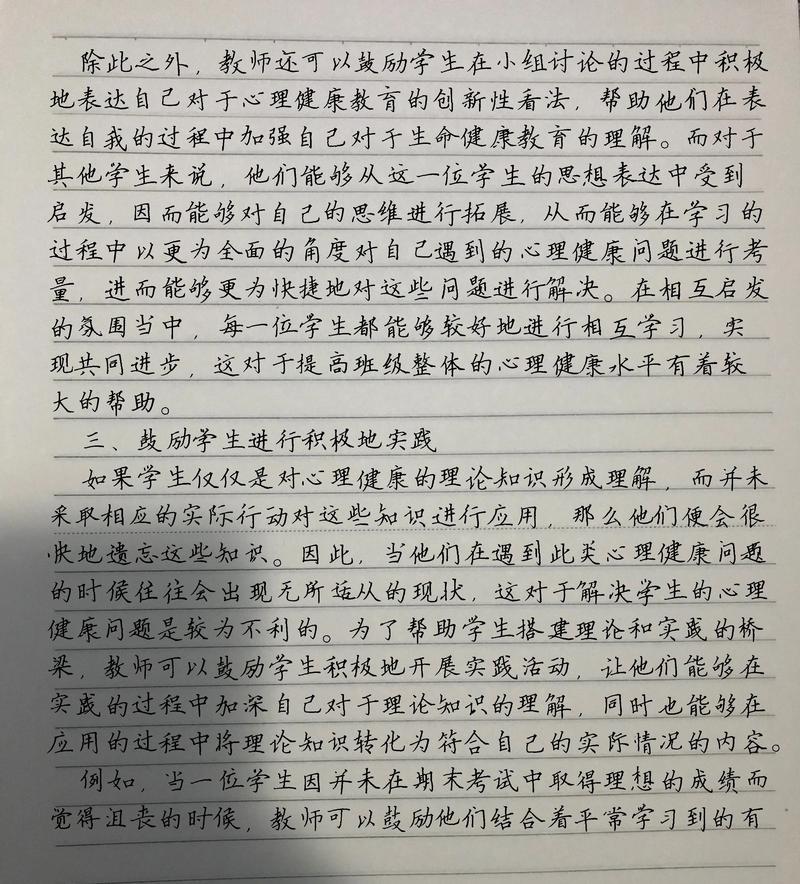 除此之外，教师还可以鼓励学生在小组讨论的过程中积极
地表达自己对于心理健康教育的创新性看法，帮助他们在表
达自我的过程中加强自己对于生命健康教育的理解。而对于
其他学生来说，他们能够从这一位学生的思想表达中受到
启发，因而能够对自己的思维进行拓展，从而能够在学习的
过程中以更为全面的角度对自己遇到的心理健康问题进行考
量，进而能够更为快捷地对这些问题进行解决。在相互启发
的氛围当中，每一位学生都能够较好地进行相互学习，实
现共同进步，这对于提高班级整体的心理健康水平有着较
大的帮助。
三、鼓励学生进行积极地实践
如果学生仅仅是对心理健康的理论知识形成理解，而并未
采取相应的实际行动对这些知识进行应用，那么他们便会很
快地遗忘这些知识。因此，当他们在遇到此类心理健康问题
的时候往往会出现无所适从的现状，这对于解决学生的心理
健康问题是较为不利的。为了帮助学生搭建理论和实践的桥
梁，教师可以鼓励学生积极地开展实践活动，让他们能够在
实践的过程中加深自己对于理论知识的理解，同时也能够在
应用的过程中将理论知识转化为符合自己的实际情况的内容。
例如，当一位学生因并未在期末考试中取得理想的成绩而
觉得沮丧的时候，教师可以鼓励他们结合着平常学习到的有